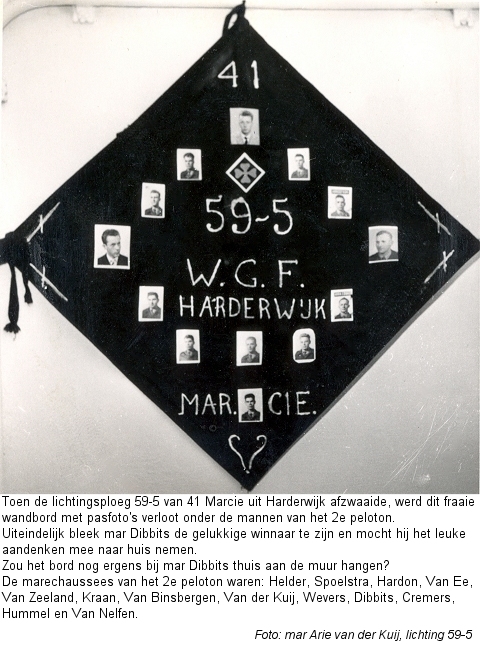 41
59-5
W.G.F.
HARDERWIJK
MAR. CIE.
Toen de lichtingsploeg 59-5 van 41 Marcie uit Harderwijk afzwaaide, werd dit fraaie
wandbord met pasfoto's verloot onder de mannen van het 2e peloton.
Uiteindelijk bleek mar Dibbits de gelukkige winnaar te zijn en mocht hij het leuke
aandenken mee naar huis nemen.
Zou het bord nog ergens bij mar Dibbits thuis aan de muur hangen?
De marechaussees van het 2e peloton waren: Helder, Spoelstra, Hardon, Van Ee,
Van Zeeland, Kraan, Van Binsbergen, Van der Kuij, Wevers, Dibbits, Cremers,
Hummel en Van Nelfen.
Foto: mar Arie van der Kuij, lichting 59-5